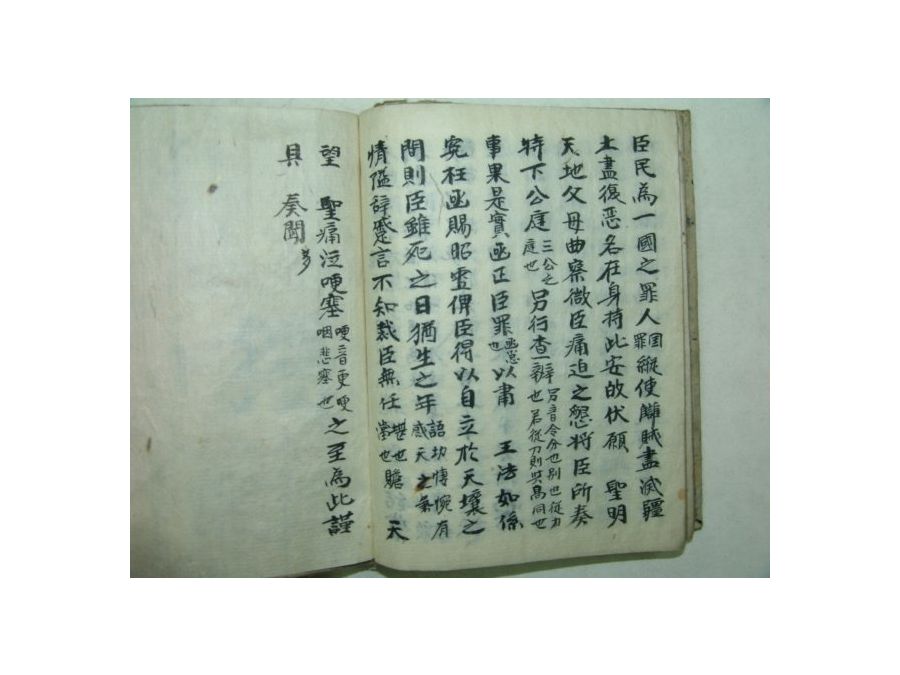 臣民為一國之罪人国罪縱使讎賊盡滅疆
土盡復惡名在身持此安㱕伏願 聖明
天地父母曲察微臣痛迫之懇將臣所奏
特下公庭三公之庭也另行查辨另音令分也別也從力也若從刀則與咼同也
事果是實亟正臣罪亟急也以肅 王法如係
寃枉亟賜昭雪俾臣得以自立於天壤之
間則臣雖死之日猶生之年語切悽惋有感天之氣
情隘辭蹙言不知裁臣無任堪也當也瞻 天
望 聖痛泣哽塞哽音更哽咽悲塞也之至為此謹
具 奏聞